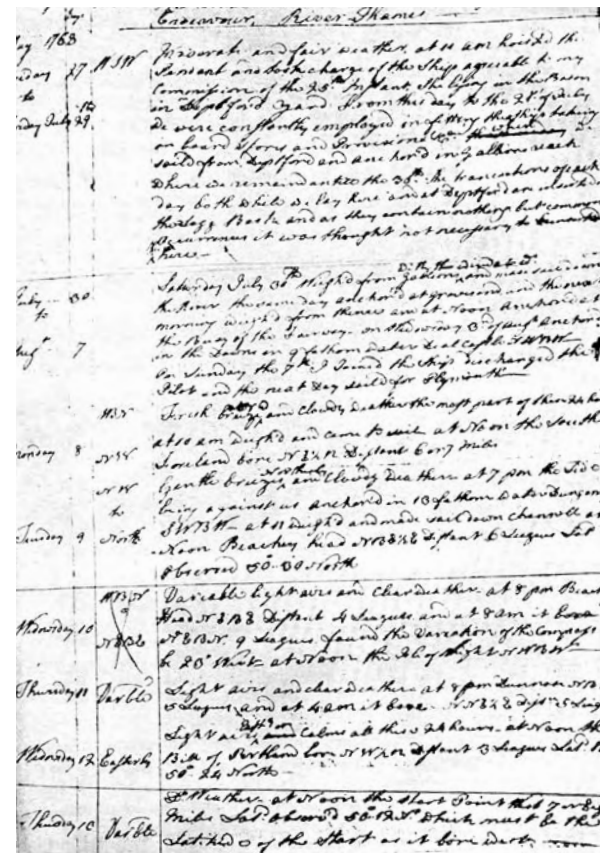 Endeavour, River Thames
1768
27 WSW Moderate and fair weather, at 11 am hoisted the
Pendant and took charge of the Ship agreeable to my
Commission of the 25th Instant, She lying in the Bason
in Deptford Yard. From this day to the 21st of July
July 29 we were constantly employed in fitting the Ship taking
on board Stores and Provisions
saild from Deptford and anchord in Gallions reach
where we remaind until the 30th. The transactions of each
day both while we lay here and at Deptford are inserted
the Logg Book and as they contain nothing but common
Occurrences it was thought not necessary to
here
Saturday July 30th Weigh'd from Gallions, and made sail down
30 the River the same day anchord at gravesend and the next
to morning weighd from thence and at Noon Anchord at
the Buoy of the Fairway. on Wednesday 3d of Augt Anchor
7 in the Downs in 9 fathom water Deal Castle NWBW
On Sunday the 7th I Joined the Ship discharged the
Pilot and the next Day saild for Plymouth
WBN Fresh and Cloudy Weather the most part of these 24 hou
at 10 am Weigh'd and came to sail at Noon the South
8 NBW Foreland bore NE½N Distant 6 or 7 Miles
NW Gentle breezes, and Cloudy Weather at 7 pm the Tide
to being against us Anchord in 13 fathom Water Dungen
SWBW at 11 Weigh'd and made sail down Channell at
9 North Noon Beachey head NBE½E Distant 6 Leagues Lat
Observed 50°30 North
WBN Variable light airs and clear Weather at 8 pm Beach
Head NEBE Distant 4 Leagues and at 8 am it bore
Wednesday 10 NEBE NEBN 9 Leagues, found the Variation of the Compass
be 23° West at Noon the Isle of Wight NWBN
Thursday 11 Varble Light airs and clear Weather at 8 pm Dunnose NBW
5 Leagues, and at 4 am it bore NNE½E Dist 5 Leag
Light airs and Calms all these 24 hours. at Noon the
Wednesday 12 Easterly Bill of Portland bore NW½N Distant 3 Leagues Lat
50°24 North
Do Weather. at Noon the Start Point West 7 or 8
Thursday Varble Miles Lat. Observd which must be the
Latitude of the Start as it bore West